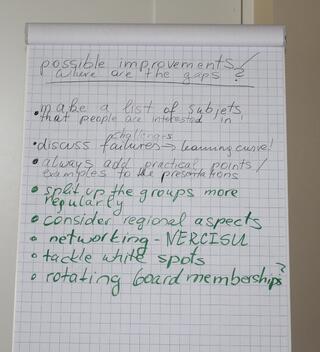 possible improvements /
where are the gaps ?
• make a list of subjets
that people are interested in !
challenges
• discuss failures → learning curve!
• always add practical points /
examples to the presentations
• split up the groups more
regularly
• consider regional aspects
• networking - VERCISU
• tackle white spots
• rotating board memberships?